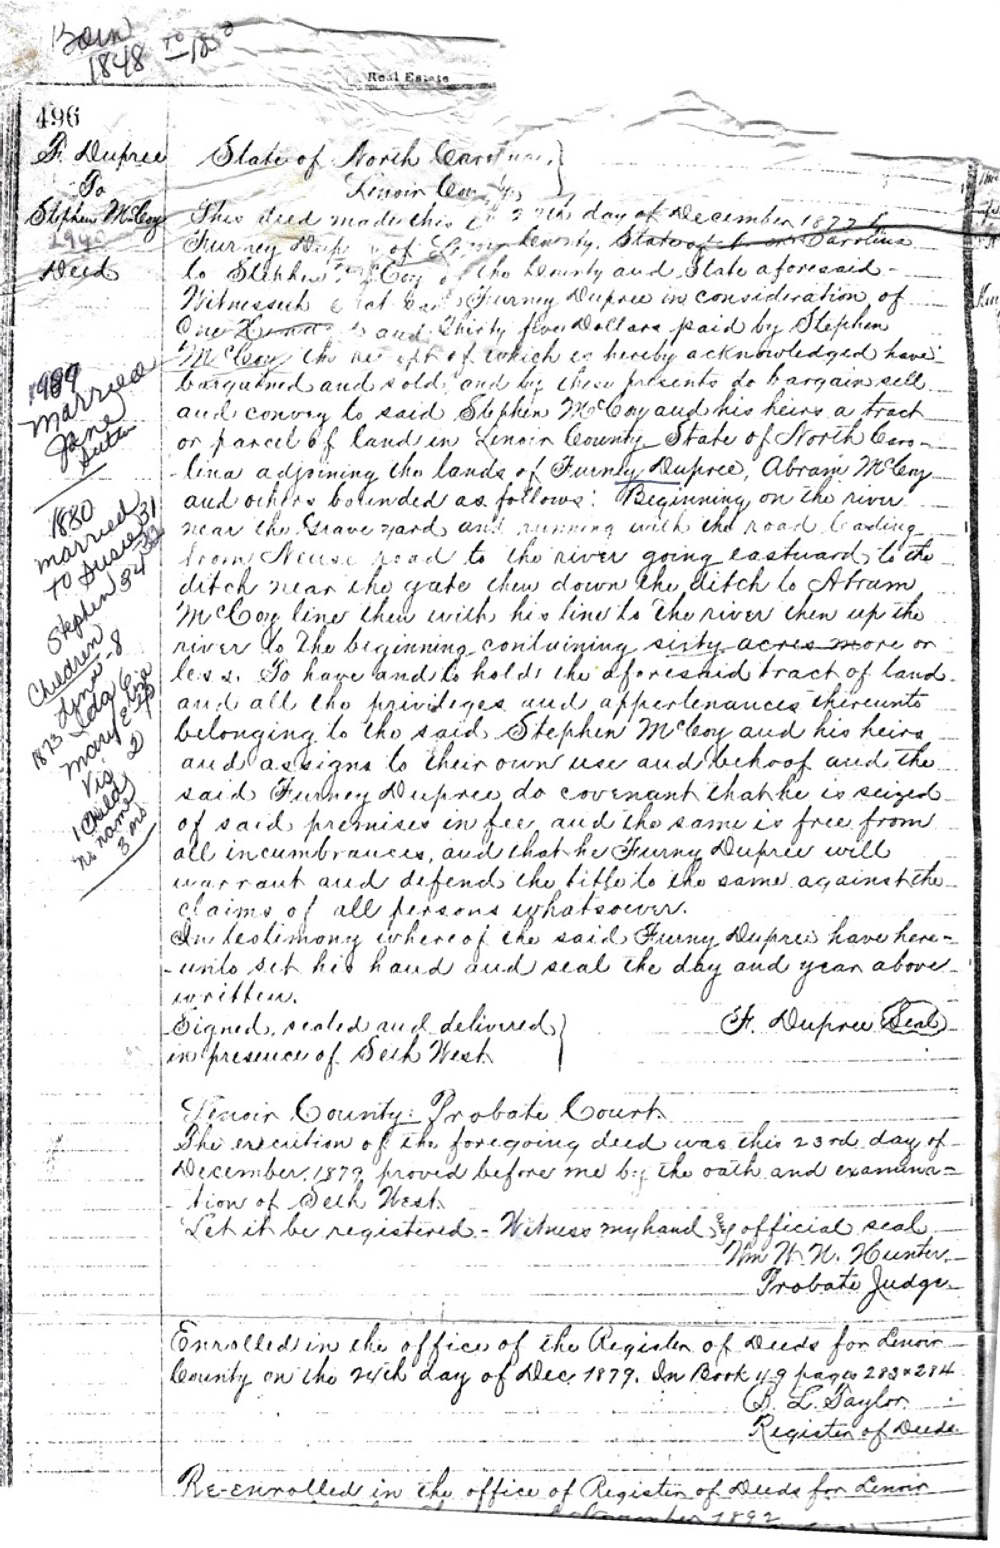 Born
1848 TO
Real Estate
496
F. Dupree
To
Stephen McCoy
1940
Deed
State of North Carolina,
Lenoir County
This deed made this 27th day of December 1877 by
Furney Dupree of Lenoir County, State of North Carolina
to Stephen McCoy of the County and State aforesaid-
Witnesseth that said Furney Dupree in consideration of
One Hundred and Thirty five Dollars paid by Stephen
McCoy the receipt of which is hereby acknowledged have
bargained and sold and by these presents do bargain sell
and convey to said Stephen McCoy and his heirs a tract
or parcel of land in Lenoir County State of North Caro-
-lina adjoining the lands of Furney Dupree, Abram McCoy
and others bounded as follows: Beginning on the river
near the Grave yard and running with the road leading
from Neuse road to the river going eastward to the
ditch near the gate then down the ditch to Abram
McCoy line then with his line to the river then up the
river to the beginning containing sixty acres more or
less. To have and to hold the aforesaid tract of land
and all the privileges and appertenances thereunto
belonging to the said Stephen McCoy and his heirs
and assigns to their own use and behoof and the
said Furney Dupree do covenant that he is seized
of said premises in fee and the same is free from
all incumbrances, and that he Furny Dupree will
warrant and defend the title to the same against the
claims of all persons whatsoever.
In testimony whereof the said Furny Dupree have here-
-unto set his hand and seal the day and year above
written.
Signed, sealed and delivered
in presence of Seth West
F. Dupree Seal
Lenoir County: Probate Court.
The execution of the foregoing deed was this 23rd day of
December, 1879 proved before me by the oath and examina-
-tion of Seth West.
Let it be registered - Witness my hand & official seal
Wm W. N. Hunter
Probate Judge
Enrolled in the office of the Register of Deeds for Lenoir
County on the 24th day of Dec. 1879. In Book 49 pages 283 & 284
B. L. Taylor
Register of Deeds
Re-enrolled in the office of Register of Deeds for Lenoir
1892
Married
Jane
Sutton
1880
married
TO Susie 31
Stephen 34
Children
8
1873 Ida 6
Mary Eliza
2
1 child
no name
3 mo